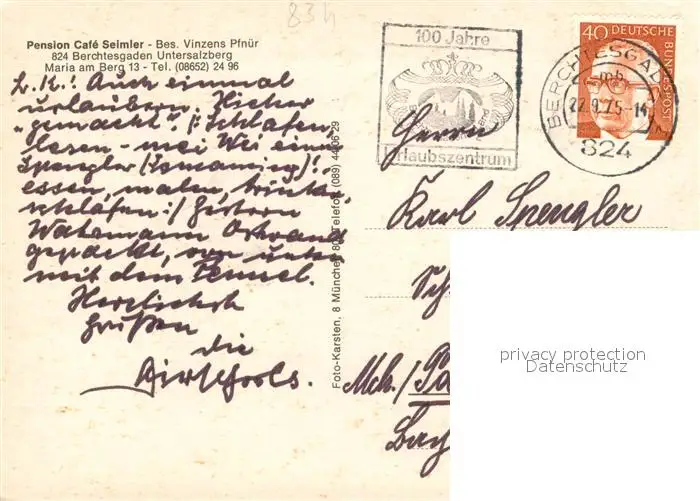 83h
Pension Café Seimler - Bes. Vinzens Pfnür
824 Berchtesgaden Untersalzberg
Maria am Berg 13 - Tel. (08652) 24 96
L. K.! Auch einmal
urlaubern. Hieher
"gemacht". /: Schlafen,
lesen - mei Wei
Spengler (Ismaning)!,
essen, malen,
schlafen :/ Gestern
Watzmann Ostwand
gepackt, von unten
mit dem Pemsel.
Herzlichst
grüßen
die
Foto-Karsten, 8 München 80, Telefon (089) 4406 29
100 Jahre
Urlaubszentrum
40 DEUTSCHE BUNDESPOST
BERCHTESGADEN
22.9.75-14
824
Herrn
Karl Spengler
Sch
Mch./Pa
Bay
privacy protection
Datenschutz